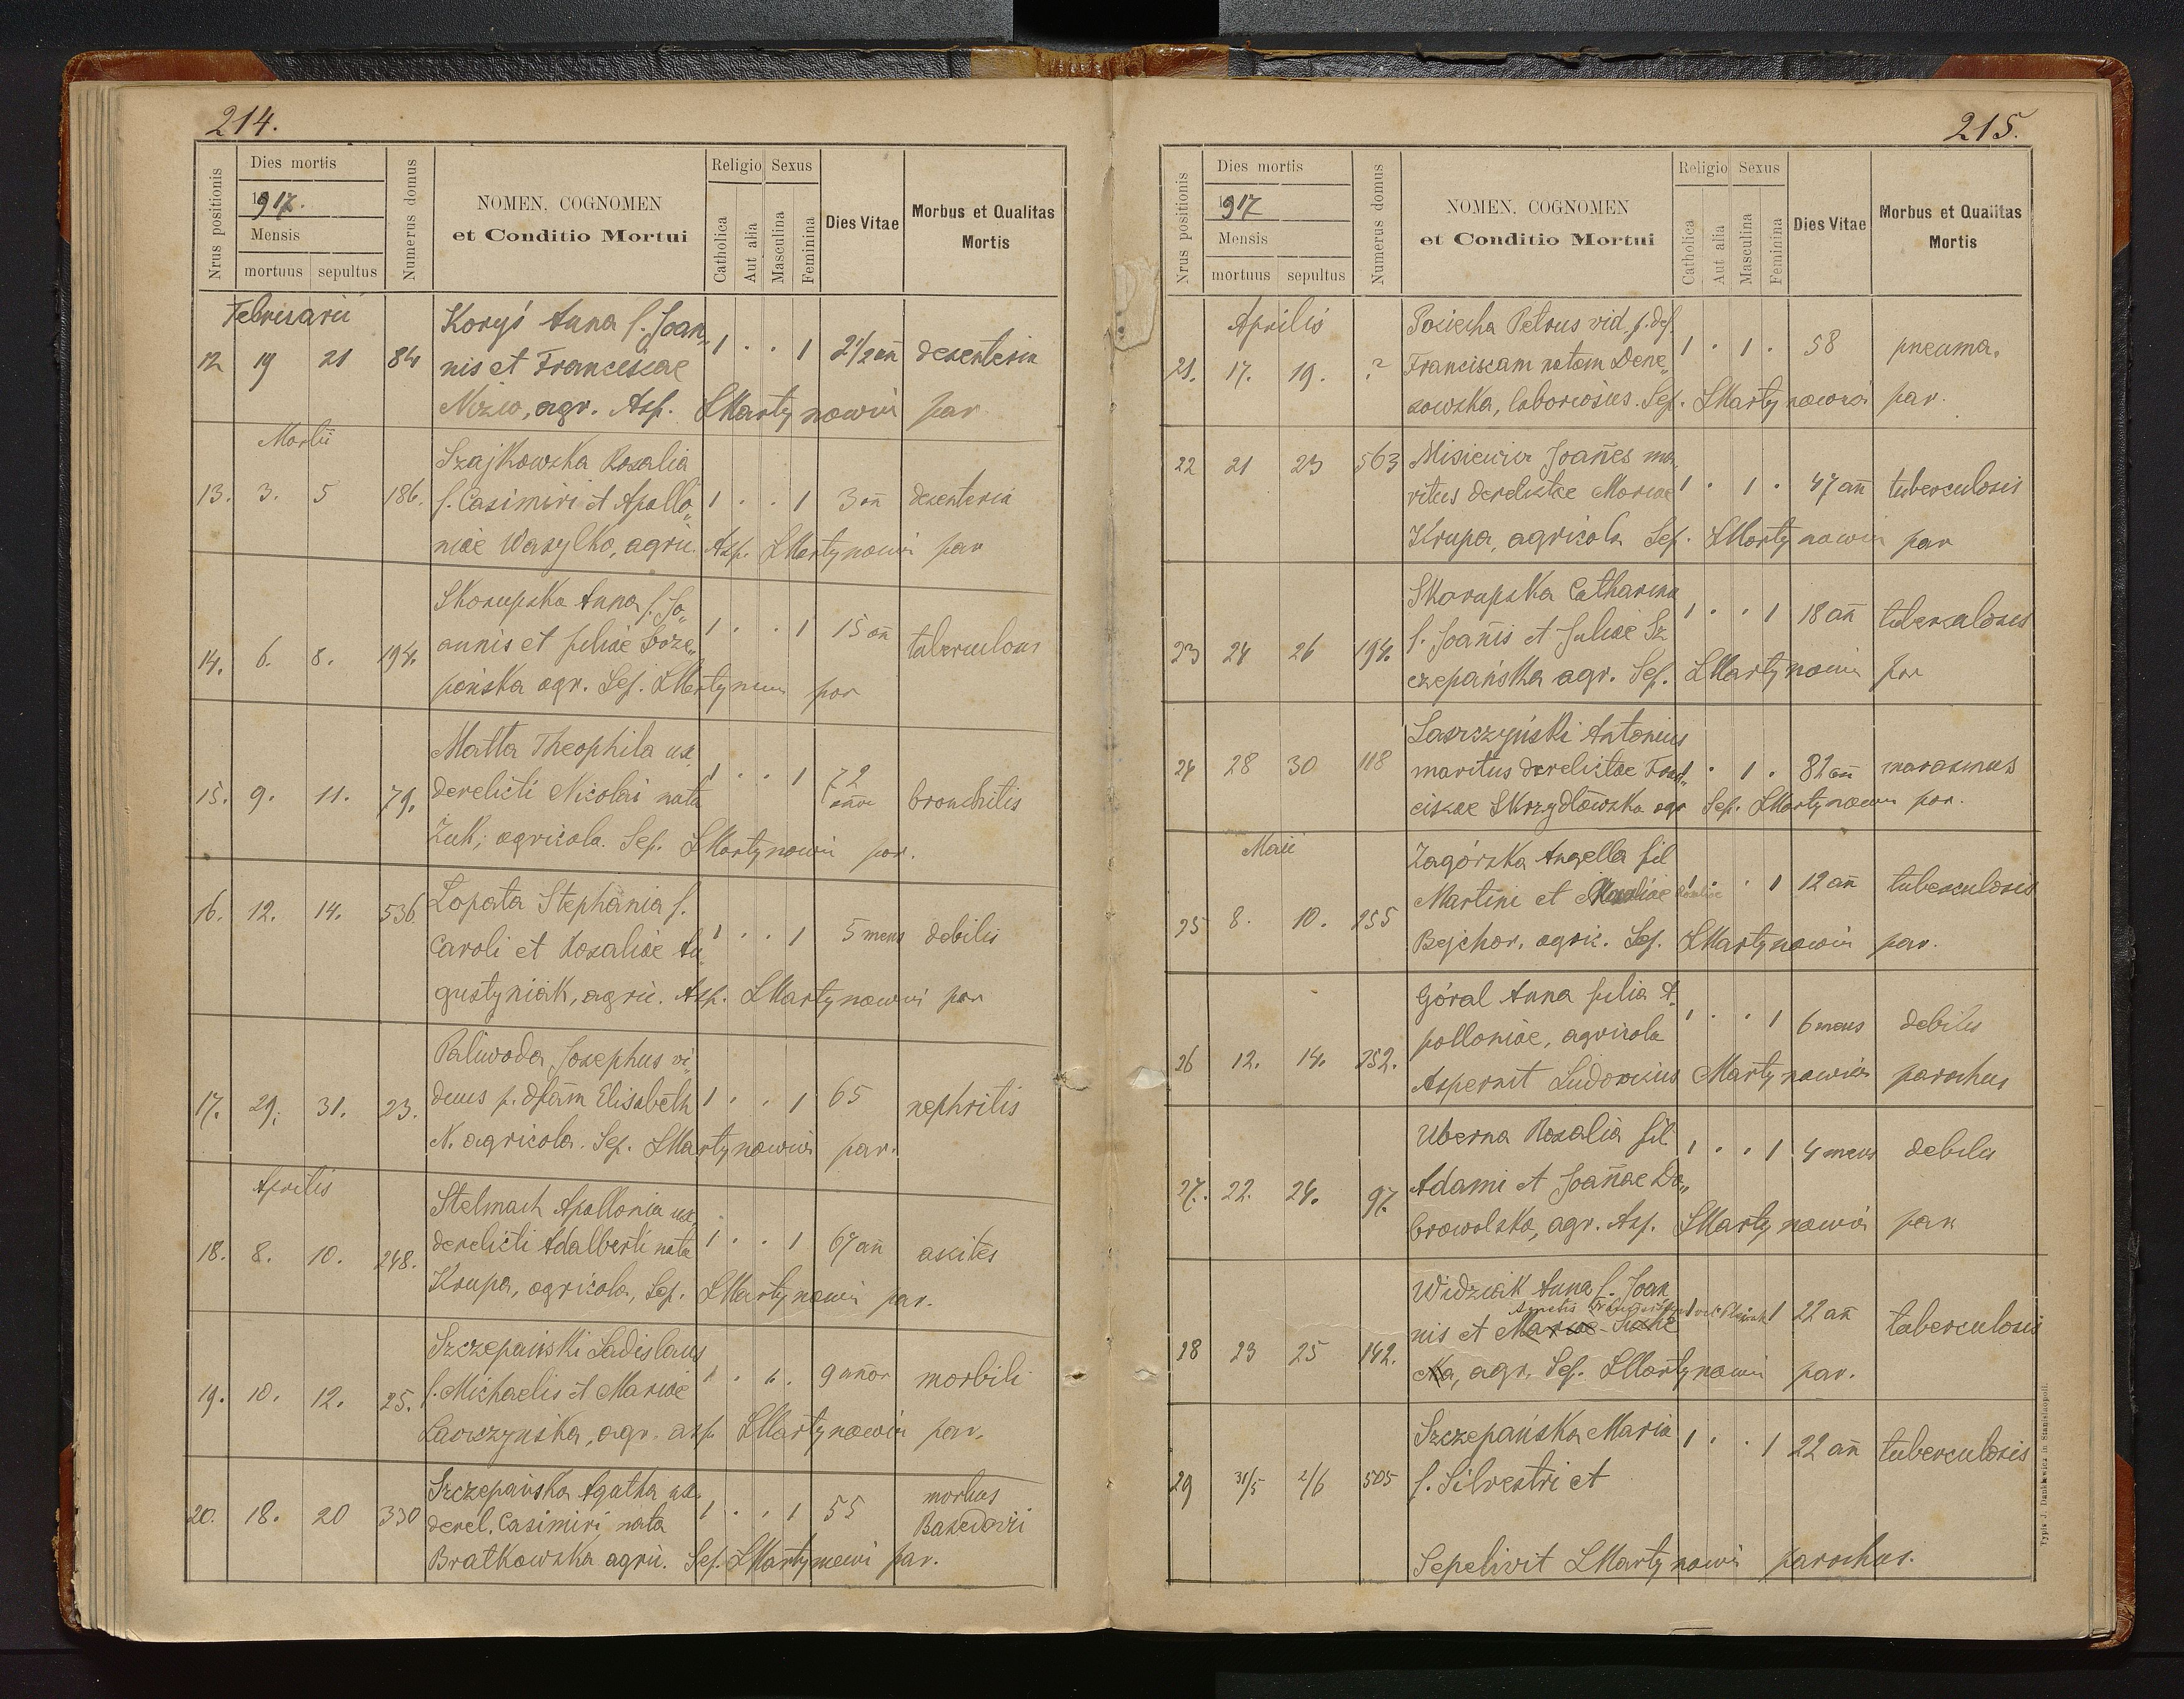 214.
Nrus positionis
Dies mortis
1917.
Mensis
mortuus sepultus
Numerus domus
NOMEN, COGNOMEN
et Conditio Mortui
Religio Sexus
Catholica
Aut alia
Masculina
Feminina
Dies Vitae
Morbus et Qualitas
Mortis
Februarii
Koryś Anna f. Joan„
12 19 21 84 nis et Franciscae 1 . . 1 2 1/2 an̄ desenteria
Mizio, agr. Asp. LMartynowicz par
Martii
Szajkowska Rosalia
13. 3. 5 186. f. Casimiri et Apollo„ 1 . . 1 3 an̄ desenteria
niae Wasylko, agric. Asp. LMartynowicz par
Skorupska Anna f. Jo„
14. 6. 8. 194. annis et Juliae Szcze„ 1 . . 1 15 an̄ tuberculosis
pańska agr. Sep. LMartynowicz par
Matła Theophila ux.
15. 9. 11. 79. derelicti Nicolai nata 1 . . 1 72 annor bronchitis
Żuk, agricola. Sep. LMartynowicz par.
16. 12. 14. 536 Łopata Stephania f.
Caroli et Rosaliae Au„ 1 . . 1 5 mens debilis
gustyniak, agric. Asp. LMartynowicz par
Paliwoda Josephus vi„
17. 29. 31. 23. duus p. dfam Elisabeth 1 . . 1 65 nephritis
N. agricola. Sep. LMartynowicz par.
Aprilis
Stelmach Apollonia ux.
18. 8. 10. 248. derelicti Adalberti nata 1 . . 1 67 an̄ ascites
Krupa, agricola, Sep. LMartynowicz par.
Szczepański Ladislaus
19. 10. 12. 25. f. Michaelis et Mariae 1 . 1 . 9 annor morbili
Laszczyńska, agr. asp. LMartynowicz par.
Szczepańska Agatha ux.
20. 18. 20 330 derel. Casimiri nata 1 . . 1 55 morbus
Basedovii
Bratkowska agric. Sep. LMartynowicz par.
215.
Nrus positionis
Dies mortis
1917
Mensis
mortuus sepultus
Numerus domus
NOMEN, COGNOMEN
et Conditio Mortui
Religio Sexus
Catholica
Aut alia
Masculina
Feminina
Dies Vitae
Morbus et Qualitas
Mortis
Aprilis
Pociecha Petrus vid. p. def.
21. 17. 19. ? Franciscam natam Dene„ 1 . 1 . 58 pneuma.
sowska, laboriosus. Sep. LMartynowicz par.
22 21 23 563 Misiewicz Joan̄es ma„
ritus derelictae Mariae 1 . 1 . 47 an̄ tuberculosis
Krupa, agricola Sep. LMartynowicz par
Skorupska Catharina
23 24 26 194. f. Joan̄is et Juliae Sz 1 . . 1 18 an̄ tuberculosis
czepańska agr. Sep. LMartynowicz par
Laszczyński Antonius
24 28 30 118 maritus derelictae Fran„ . 1 . 82 an̄ marasmus
ciscae Skrzydłowska agr Sep. LMartynowicz par.
Maii
Zagórska Angella fil
25 8. 10. 255 Martini et Rosaliae 1 . . 1 12 an̄ tuberculosis
Bejchor, agric. Sep. LMartynowicz par.
Góral Anna filia A„
26 12. 14. 252. polloniae, agricola 1 . . 1 6 mens debilis
Aspersit Ludovicus Martynowicz parochus
Uberna Rosalia fil
27. 22. 24. 97. Adami et Joan̄ae Do„ 1 . . 1 4 mens debilis
browolska, agr. Asp. LMartynowicz par
Widziak Anna f. Joan
28 23 25 142. nis et Mariae 1 22 an̄ tuberculosis
agr. Sep. LMartynowicz par.
Szczepańska Maria 1 . . 1 22 an̄ tuberculosis
29 31/5 2/6 505 f. Silvestri et
Sepelivit LMartynowicz parochus.
Typis J. Dankiewicz in Stanislaopoli.